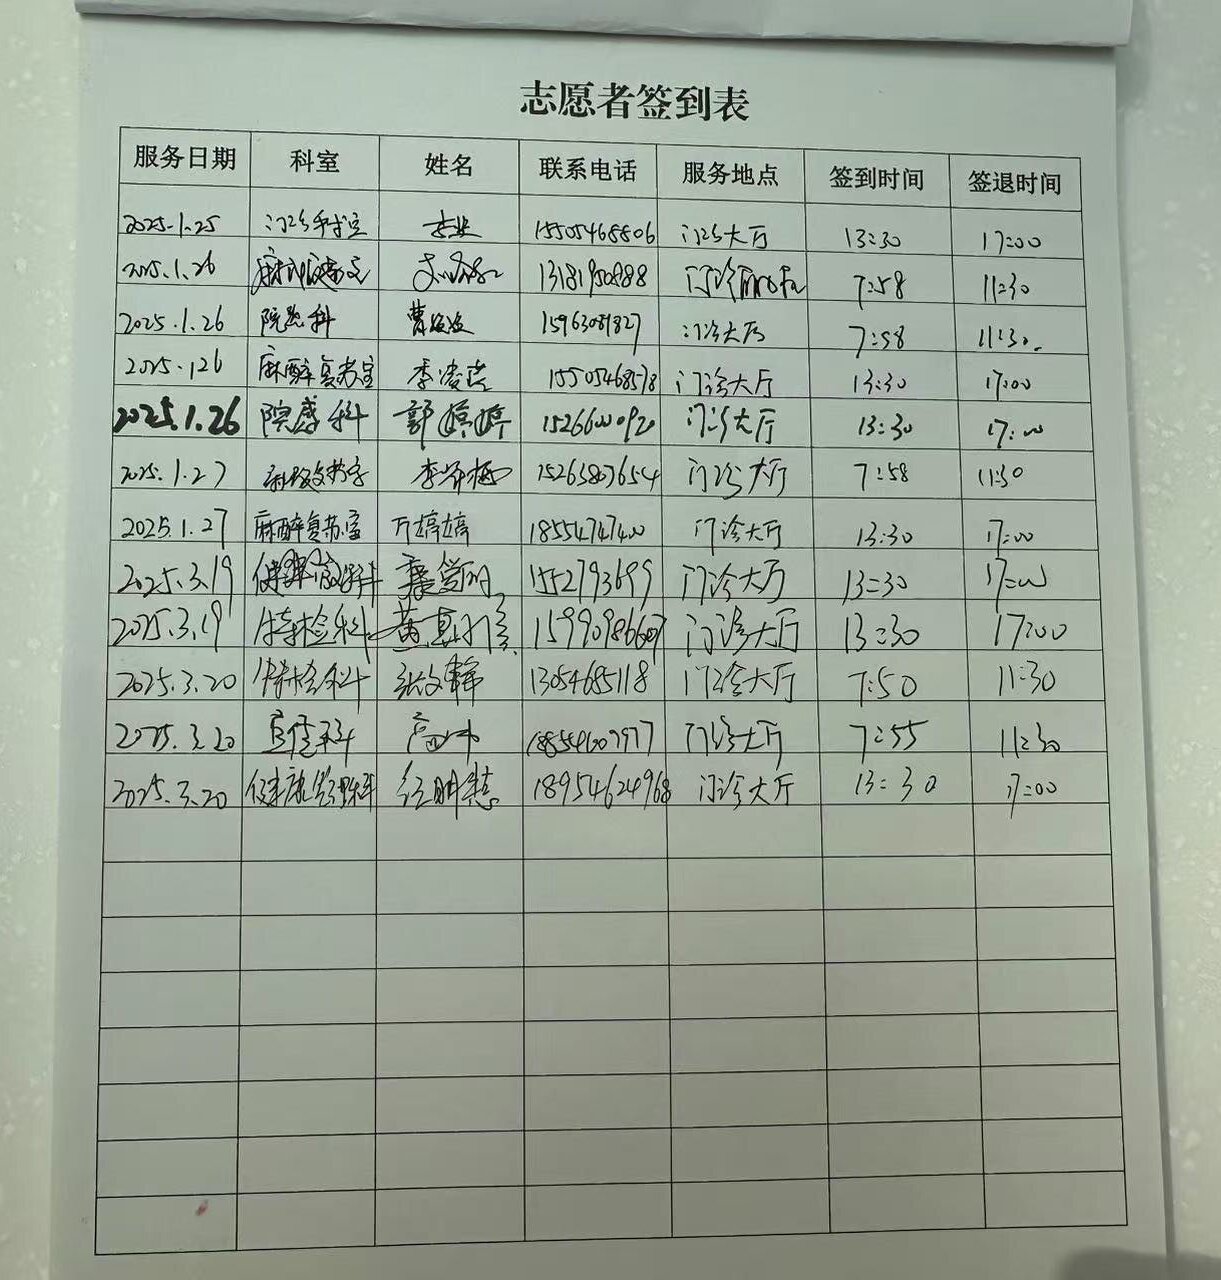 志愿者签到表
服务日期 科室 姓名 联系电话 服务地点 签到时间 签退时间
2025.1.25 15505468806 门诊大厅 13:30 17:00
2025.1.26 13181950888 门诊 7:58 11:30
2025.1.26 院感科 曹 15963089827 门诊大厅 7:58 11:30.
2025.126 麻醉复苏室 李 15505468578 门诊大厅 13:30 17:00
2025.1.26 院感科 郭婷婷 15266200920 门诊大厅 13:30 17:00
2025.1.27 李 15263807654 门诊大厅 7:58 11:30
2025.1.27 麻醉复苏室 万婷婷 18554747400 门诊大厅 13:30 17:00
2025.3.19 1552793699 门诊大厅 13:30 17:00
2025.3.19 特检科 黄 门诊大厅 13:30 17:00
2025.3.20 特检科 张文静 13054685118 门诊大厅 7:50 11:30
2025.3.20 宣传科 高 门诊大厅 7:55 11:30
2025.3.20 健康管理科 18954624968 门诊大厅 13:30 17:00